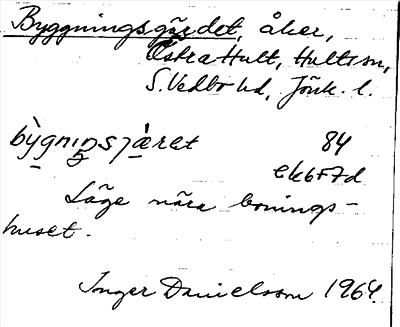 Byggningsgärdet, åker,
Östra Hult, Hultsson,
S. Vedbo hd, Jönk. l.
bỳgniŋsjæ̀ret 84
ek6F7d
Läge nära bonings-
huset.
Inger Danielsson 1964.